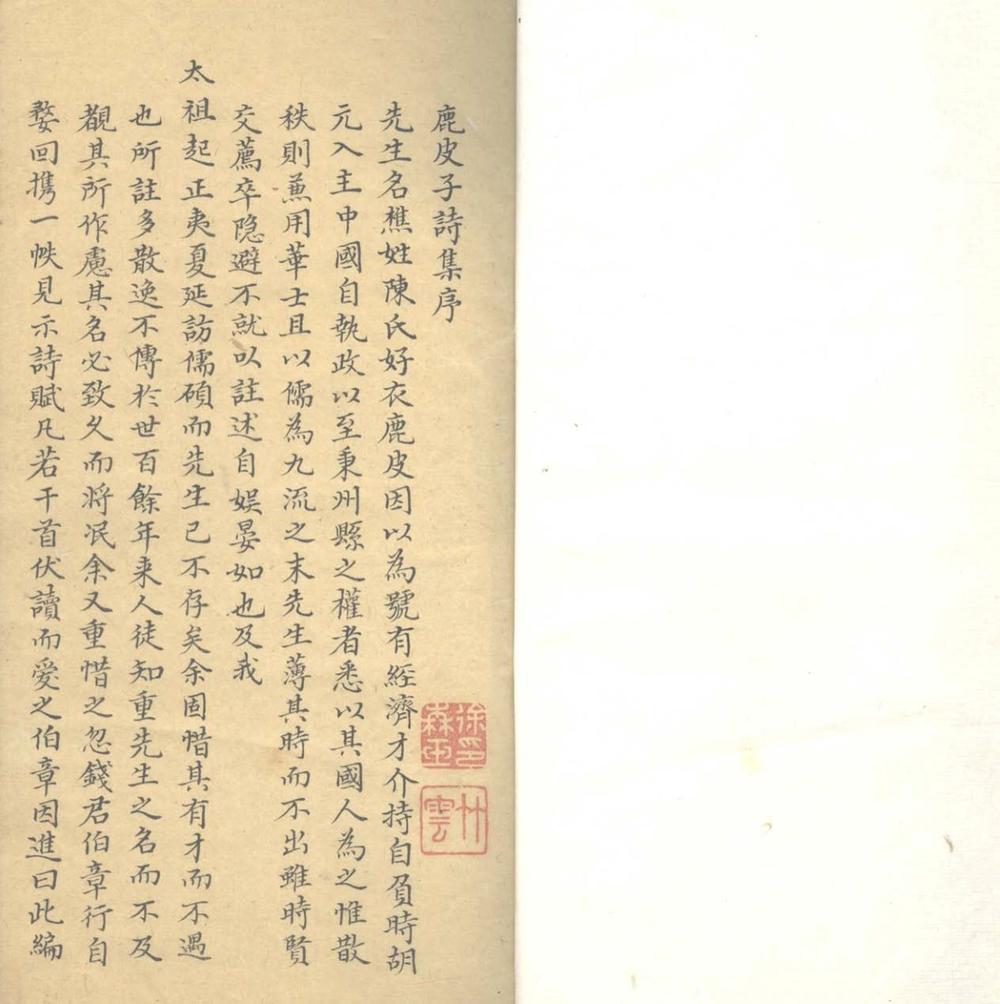 鹿皮子詩集序
先生名樵姓陳氏好衣鹿皮因以為號有經濟才介持自負時胡
元入主中國自執政以至秉州縣之權者悉以其國人為之惟散
秩則兼用華士且以儒為九流之末先生薄其時而不出雖時賢
交薦卒隐避不就以註述自娱晏如也及我
太祖起正夷夏延訪儒碩而先生已不存矣余固惜其有才而不遇
也所註多散逸不傳於世百餘年来人徒知重先生之名而不及
覩其所作慮其名必致久而将泯余又重惜之忽錢君伯章行自
婺回携一帙見示詩賦凡若干首伏讀而愛之伯章因進曰此編
徐印
森玉
竹雲